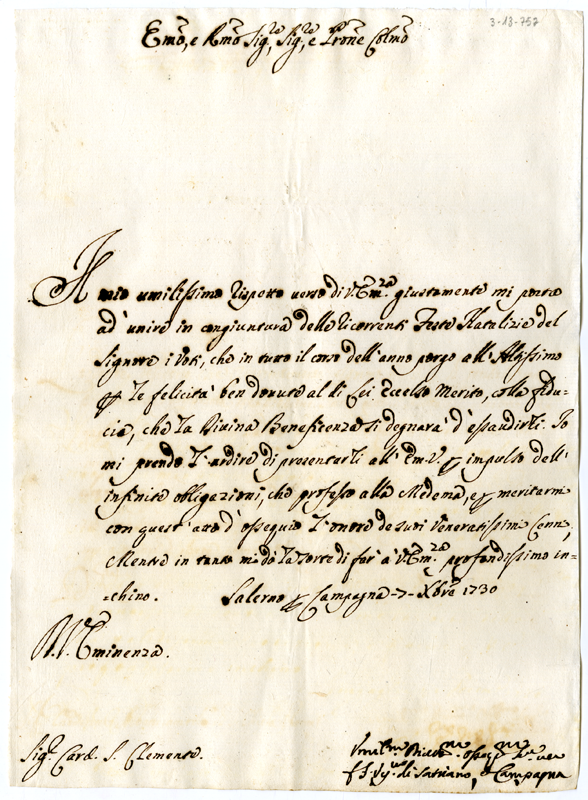 3-13-757
Emo, e Rmo Sig.re, Sig.re, e Prone Colmo
Il mio umilissimo rispetto verso di V. Em.za giustamente mi porta
ad' unire in congiuntura delle ricorrenti Feste Natalizie del
Signore i Voti, che in tutto il corso dell'anno porgo all'Altissimo
per le felicità ben dovute al di Lei Eccelso Merito, colla fidu-
cia, che la Divina Beneficenza si degnarà d'essaudirli. Io
mi prendo l'ardire di presentarli all' Em. V. per impulso dell'
infinite obligazioni, che professo alla Medema, e per meritarmi
con quest' atto d'ossequio l'onore de suoi Veneratissimi Cenni,
Mentre in tanto mi dò la sorte di far' a V. Em.za profondissimo in-
-chino. Salerno per Campagna -7- Xbre 1730
Di V. Eminenza.
Sig.r Card. S. Clemente.
Umil.mo
di Satriano, Campagna